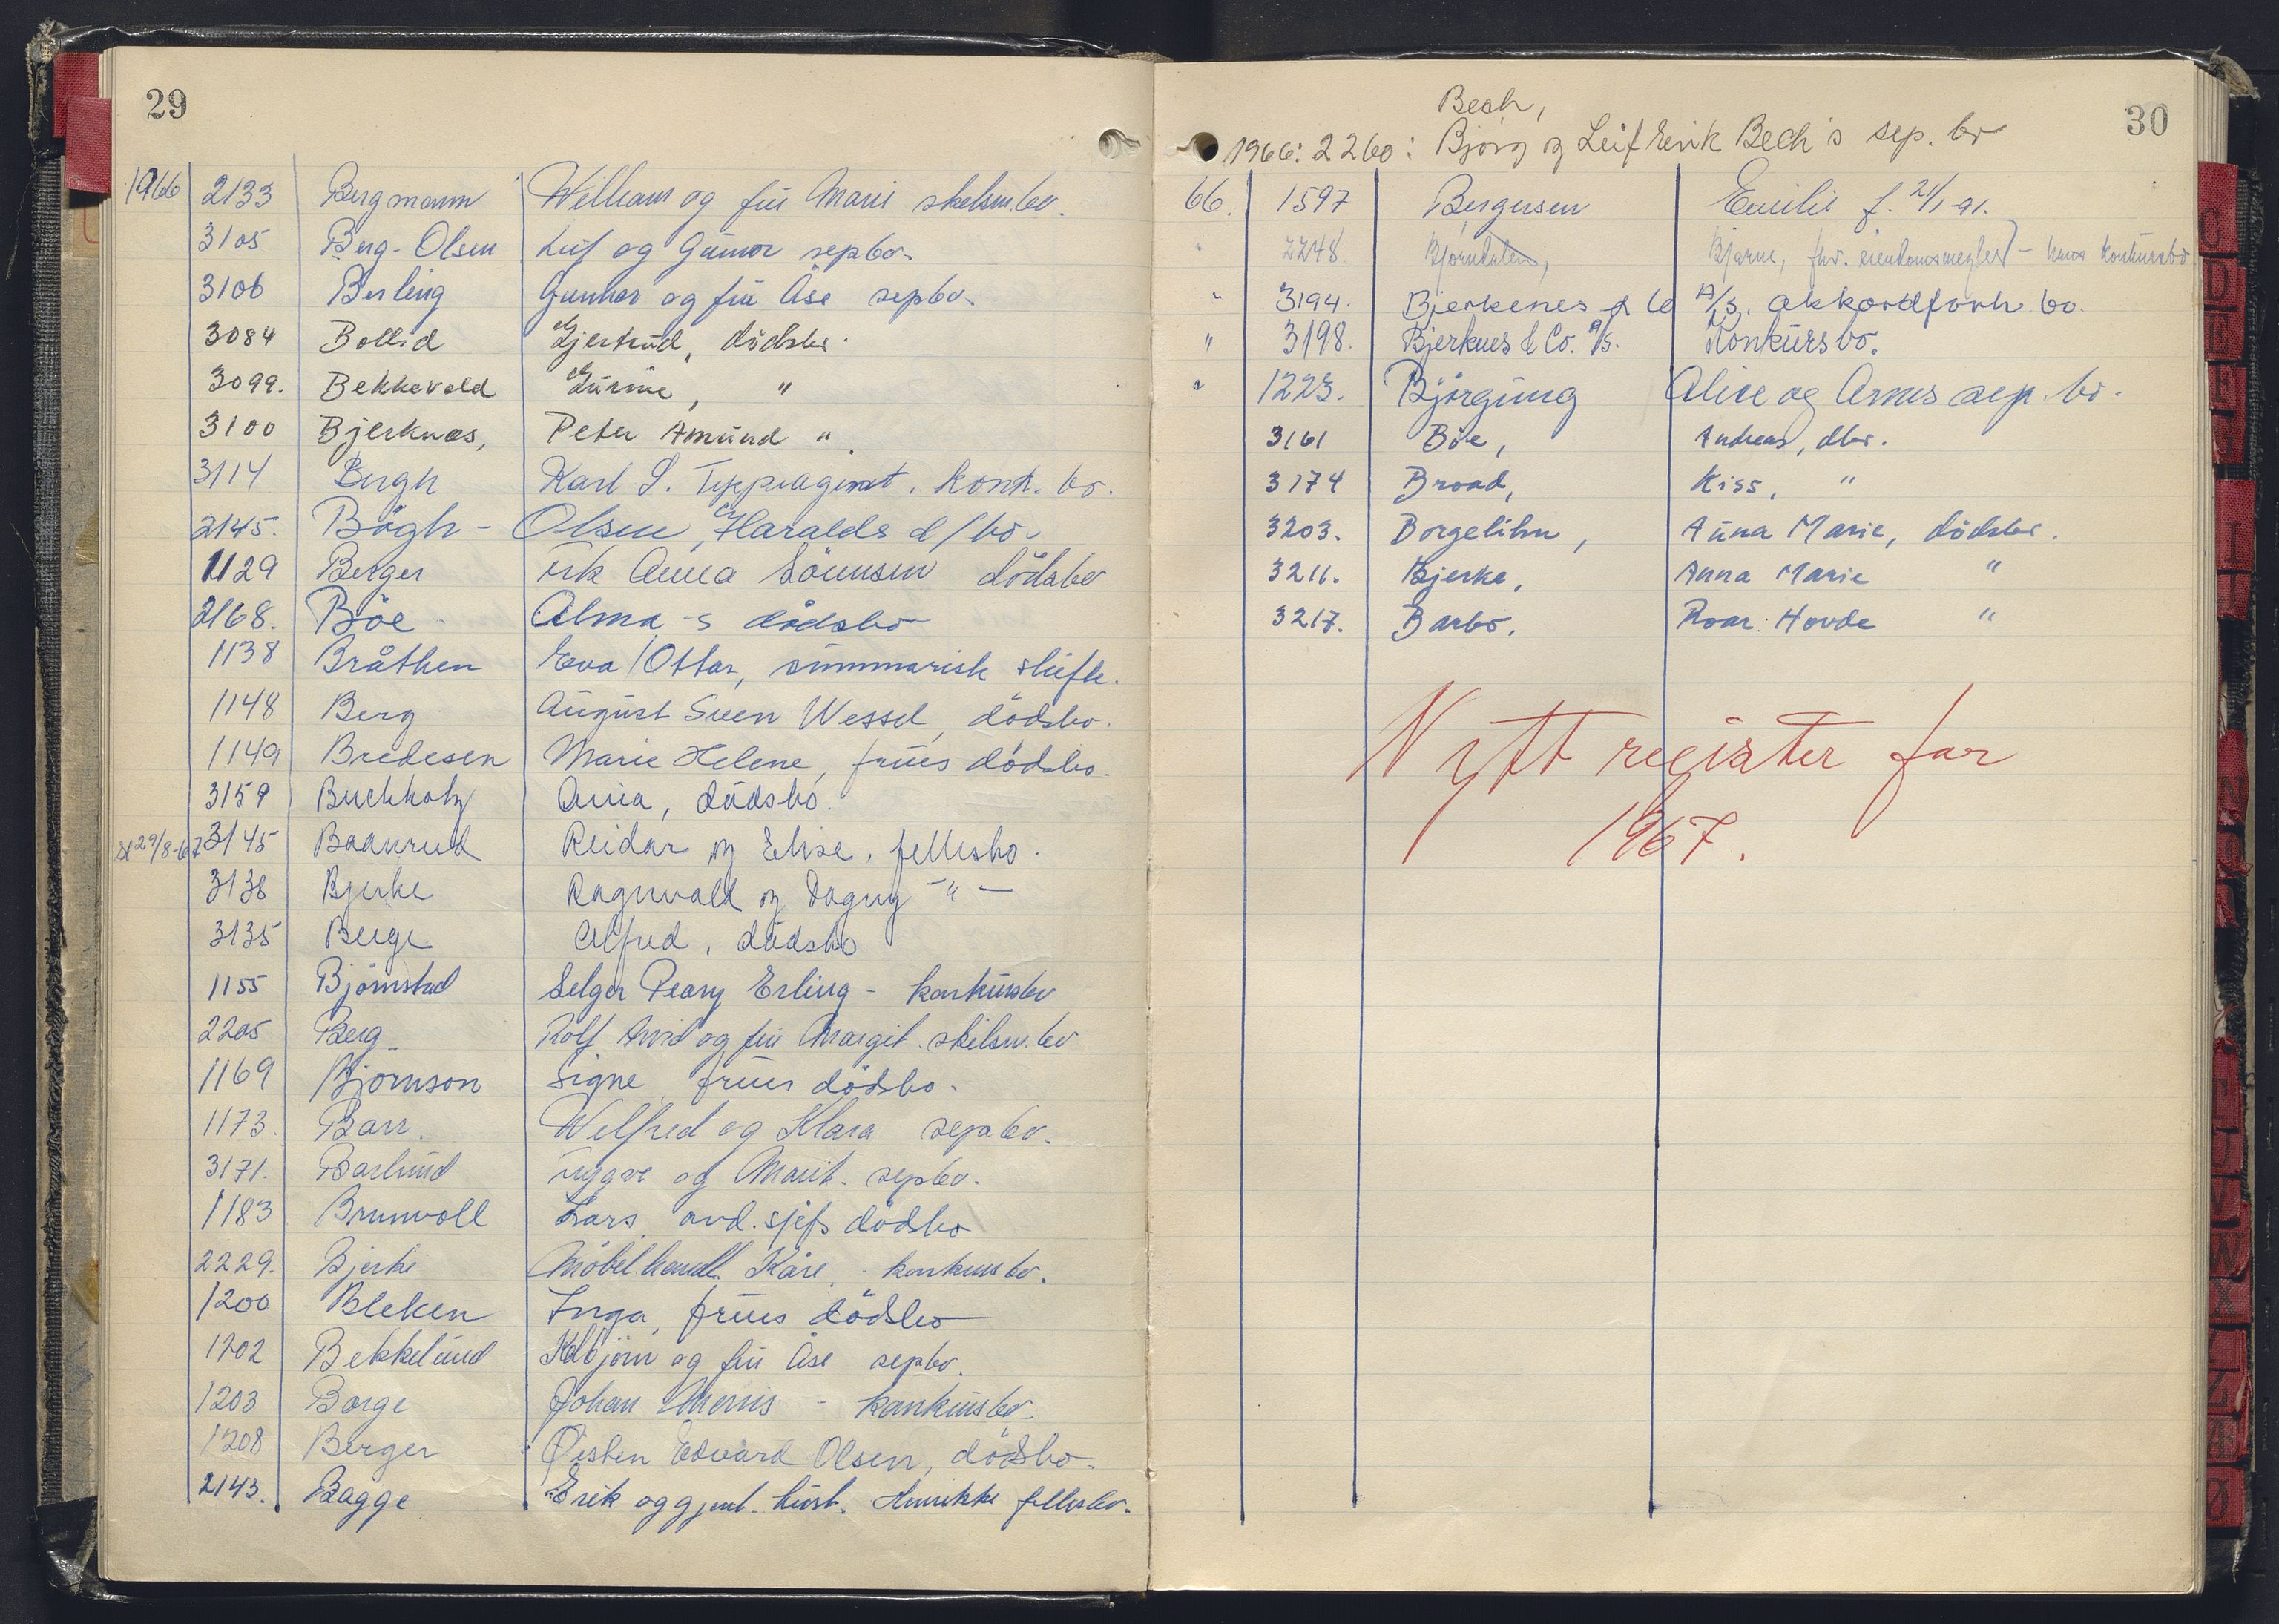 29
1966 2133 Bergmann William og fru Marie skilsm.bo.
3105 Berg-Olsen Leif og Gunvor sepbo.
3106 Berling Gunnar og fru Åse sepbo.
3084 Bollid Gjertrud, dödsbo.
3099. Bekkevold Gurine, "
3100 Bjerknes, Peter Amund "
3114 Bergh Karl S. Teppeagent. konk. bo.
2145. Bögh- Olsen, Haralds d/bo.
1129 Berger frk Anna Sörensen dödsbo
2168. Böe Alma s dødsbo
1138 Bråthen Eva/Ottar, summarisk skifte.
1148 Berg August Sven Wessel, dödsbo.
1149 Bredesen Marie Helene, frues dödsbo.
3159 Buchholz Anna, dödsbo.
sl 29/8-67 3145 Baanrud Reidar og Elise, fellesbo.
3138 Bjerke Ragnvald og Dagny -"-
3135 Berge Alfred, dödsbo
1155 Björnstad Selger Peary Erling - konkursbo
2205 Berg Rolf Arvid og fru Margit skilsm.bo
1169 Bjørnson Signe frues dödsbo.
1173. Barr. Wilfred og Klara sepbo.
3171. Barlund Trygve og Marit. sepbo.
1183 Brunvoll Lars avd.sjefs dödsbo
2229. Bjerke Möbelhandl. Kåre - konkursbo.
1200 Bleken Inga, frues dödsbo
1202 Bekkelund Kolbjörn og fru Åse sepbo.
1203 Borge Johan - konkursbo.
1208 Berger Øisten Edvard Olsen, dödsbo.
2143. Bagge Erik og gjenl. hust. Henrikke fellesbo.
30
Bech,
1966: 2260: Bjørg og Leif Erik Bech's sep. bo
66. 1597 Bergersen Emilie f. 21/1-91.
" 2248. Bjørndalen, Bjarne, fhv. eiendomsmegler - hans konkursbo
" 3194. Bjerkenes & Co A/S. akkordforh. bo.
" 3198. Bjerknes & Co. A/S. Konkursbo.
" 1223. Björgung Alice og Arnes sep. bo.
3161 Böe, Andreas, dbo.
3174 Broad, Kiss, "
3203. Borgelihn, Anna Marie, dödsbo.
3211. Bjerke, Anna Marie "
3217. Barbo, Roar Hovde "
Nytt register for
1967.